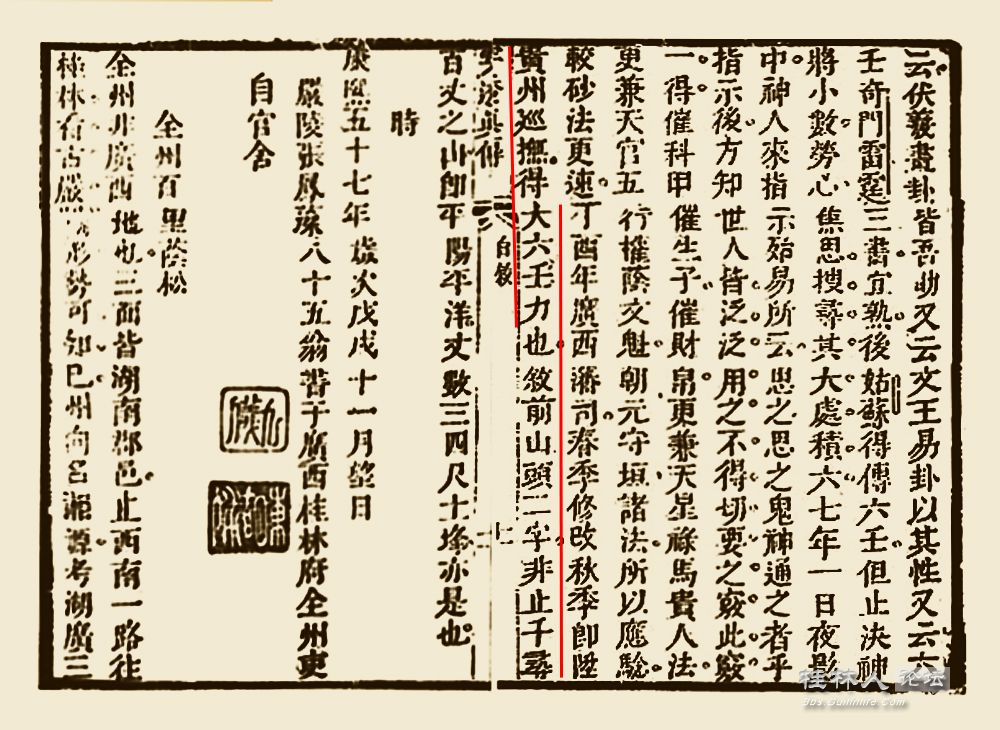 云伏羲畫卦皆吾助又云文王易卦以其性又云六
壬奇門雷霆三書宜熟後姑蘇得傳六壬但止決神
將小數勞心焦思搜尋其大處積六七年一日夜影
中神人來指示殆易所云思之思之鬼神通之者乎
指示後方知世人皆泛泛用之不得切要之竅此竅
一得催科甲催生子催財帛更兼天星祿馬貴人法
更兼天官五行權蔭文魁朝元守垣諸法所以應驗
較砂法更速丁酉年廣西藩司春季修改秋季即陞
廣州巡撫得大六壬力也敘前山頭二字非止千尋
真傳
自敘
七
百丈之山即平陽平洋丈數三四尺土條亦是也
時
康熙五十七年歲次戊戌十一月望日
嚴陵張鳳藻八十五翁書于廣西桂林府全州吏
自官舍
全州百里蔭松
全州非廣西地也三面皆湖南郡邑止西南一路往
桂林右古嚴形勢可知已州向名湘源考湖廣三
桂林人论坛
bbs.Guilinlife.Com